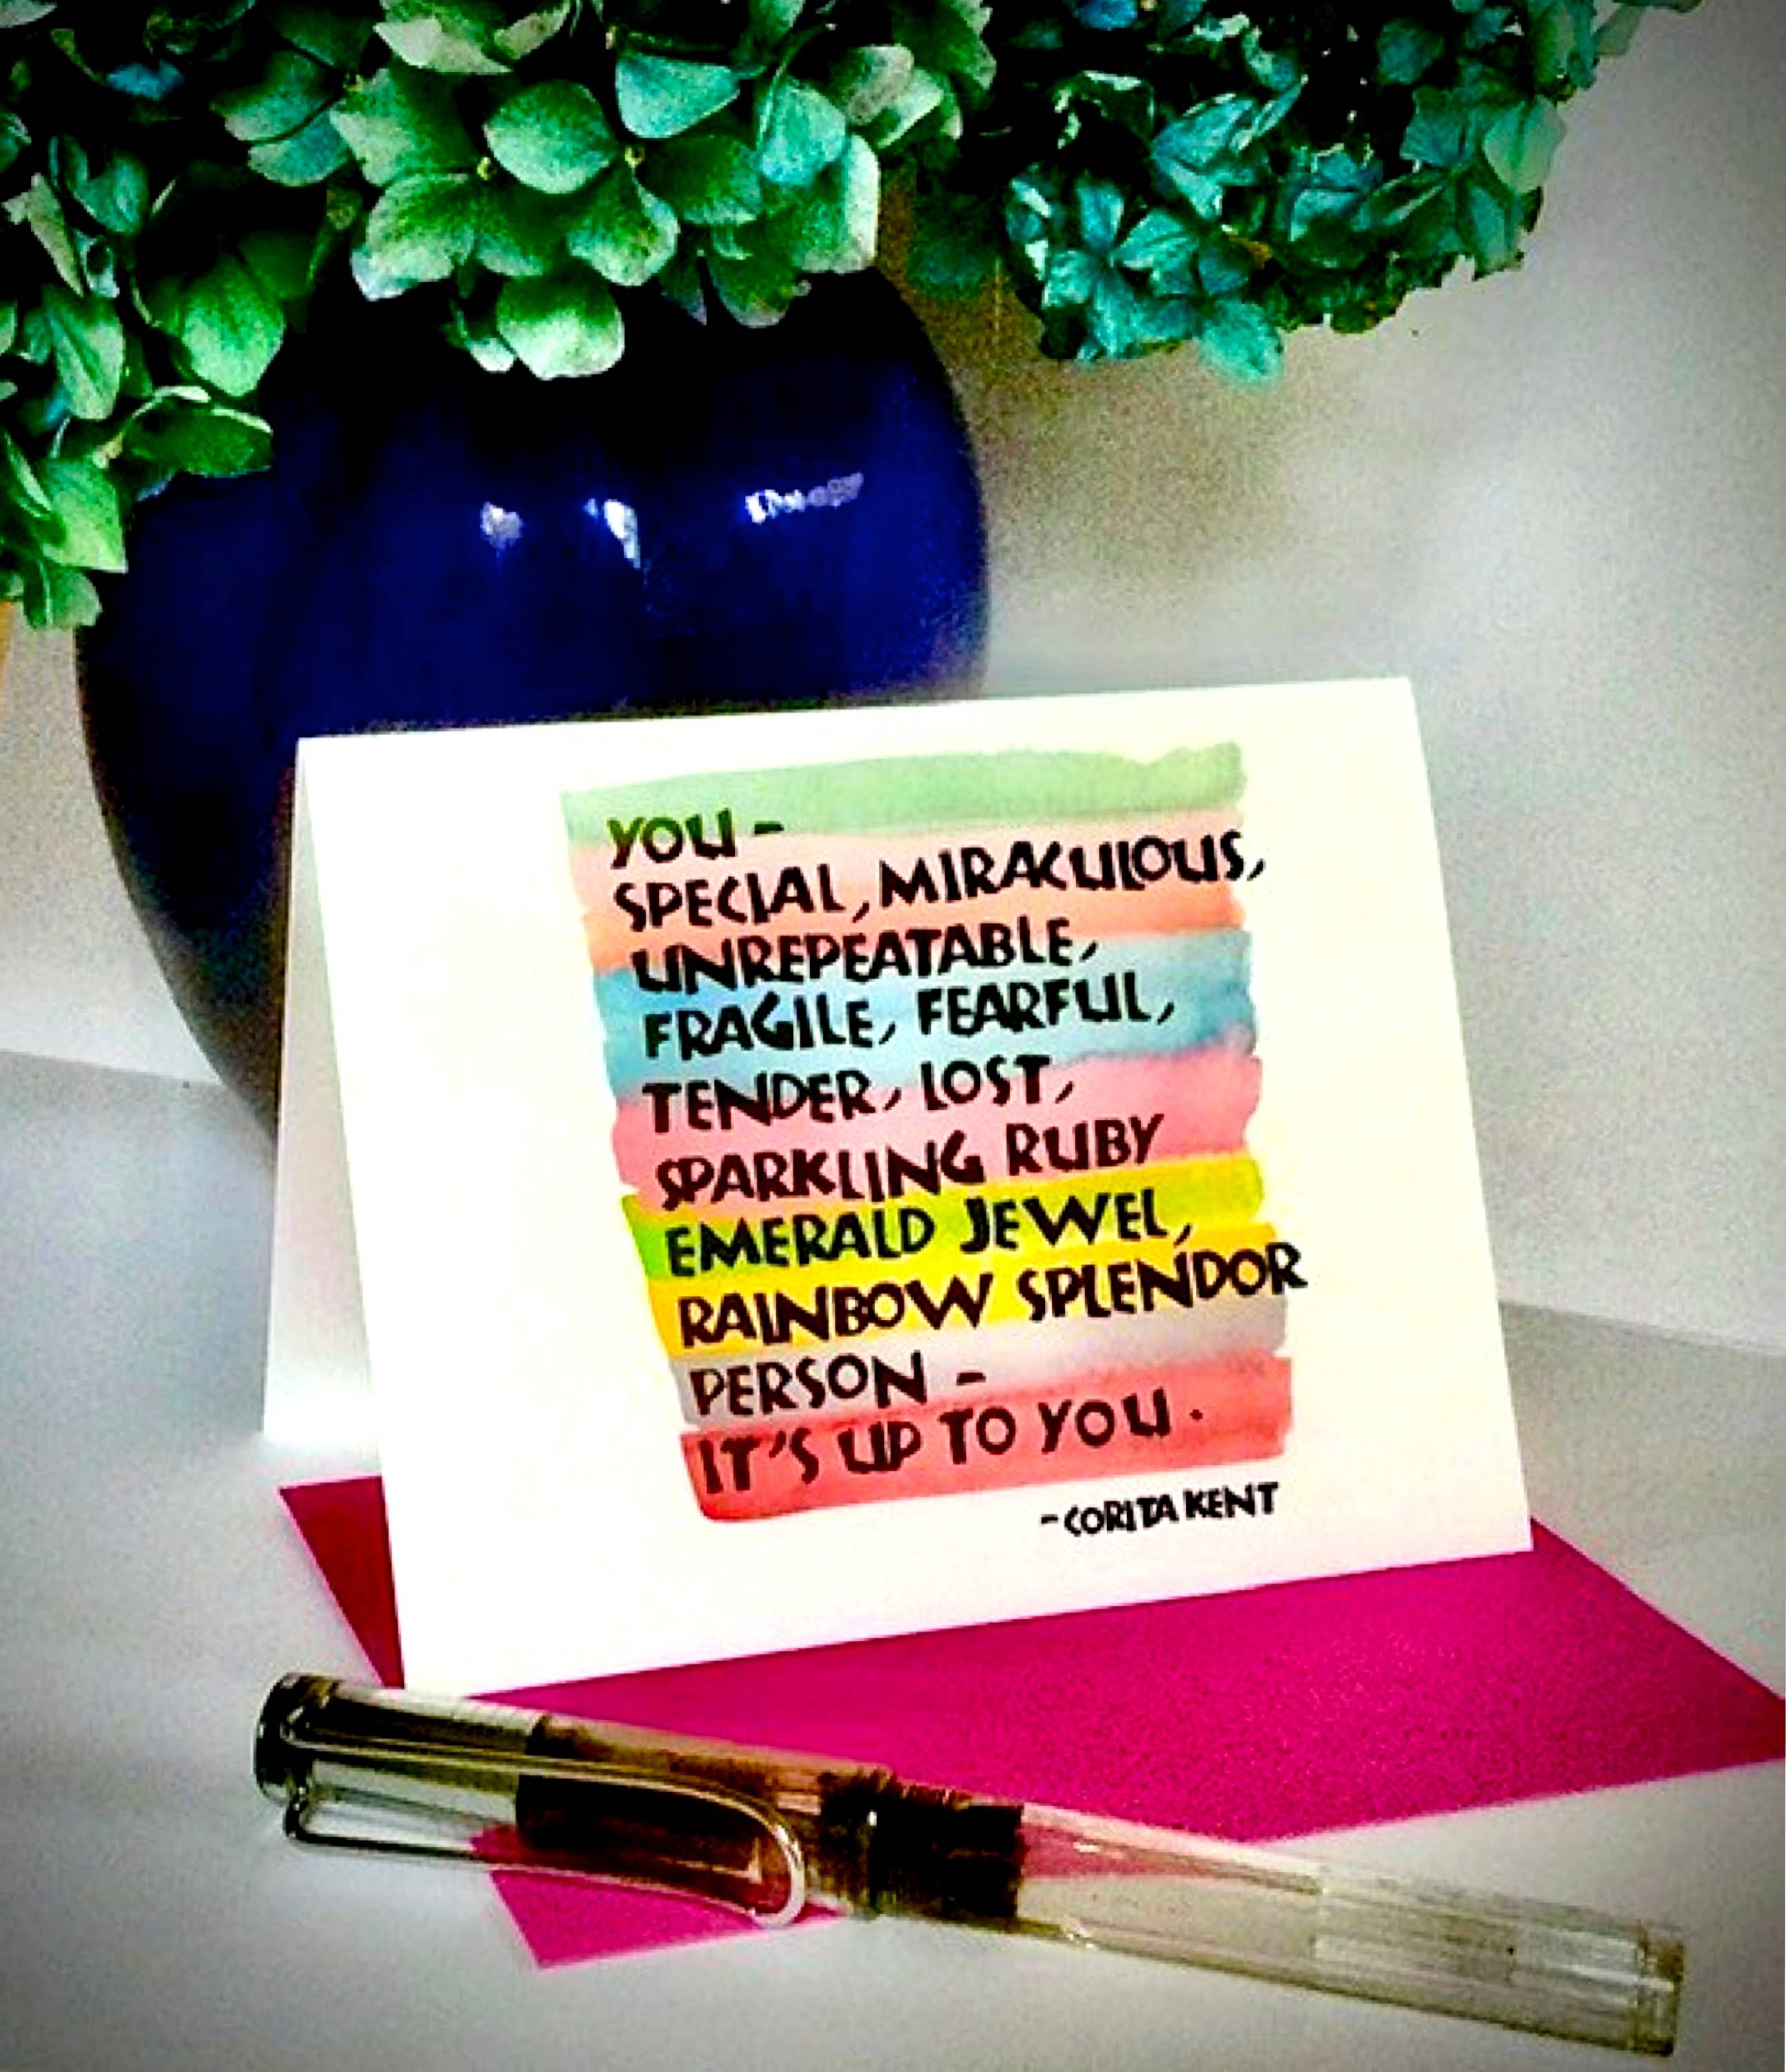 YOU -
SPECIAL, MIRACULOUS,
UNREPEATABLE,
FRAGILE, FEARFUL,
TENDER, LOST,
SPARKLING RUBY
EMERALD JEWEL,
RAINBOW SPLENDOR
PERSON -
IT'S UP TO YOU.
- CORITA KENT